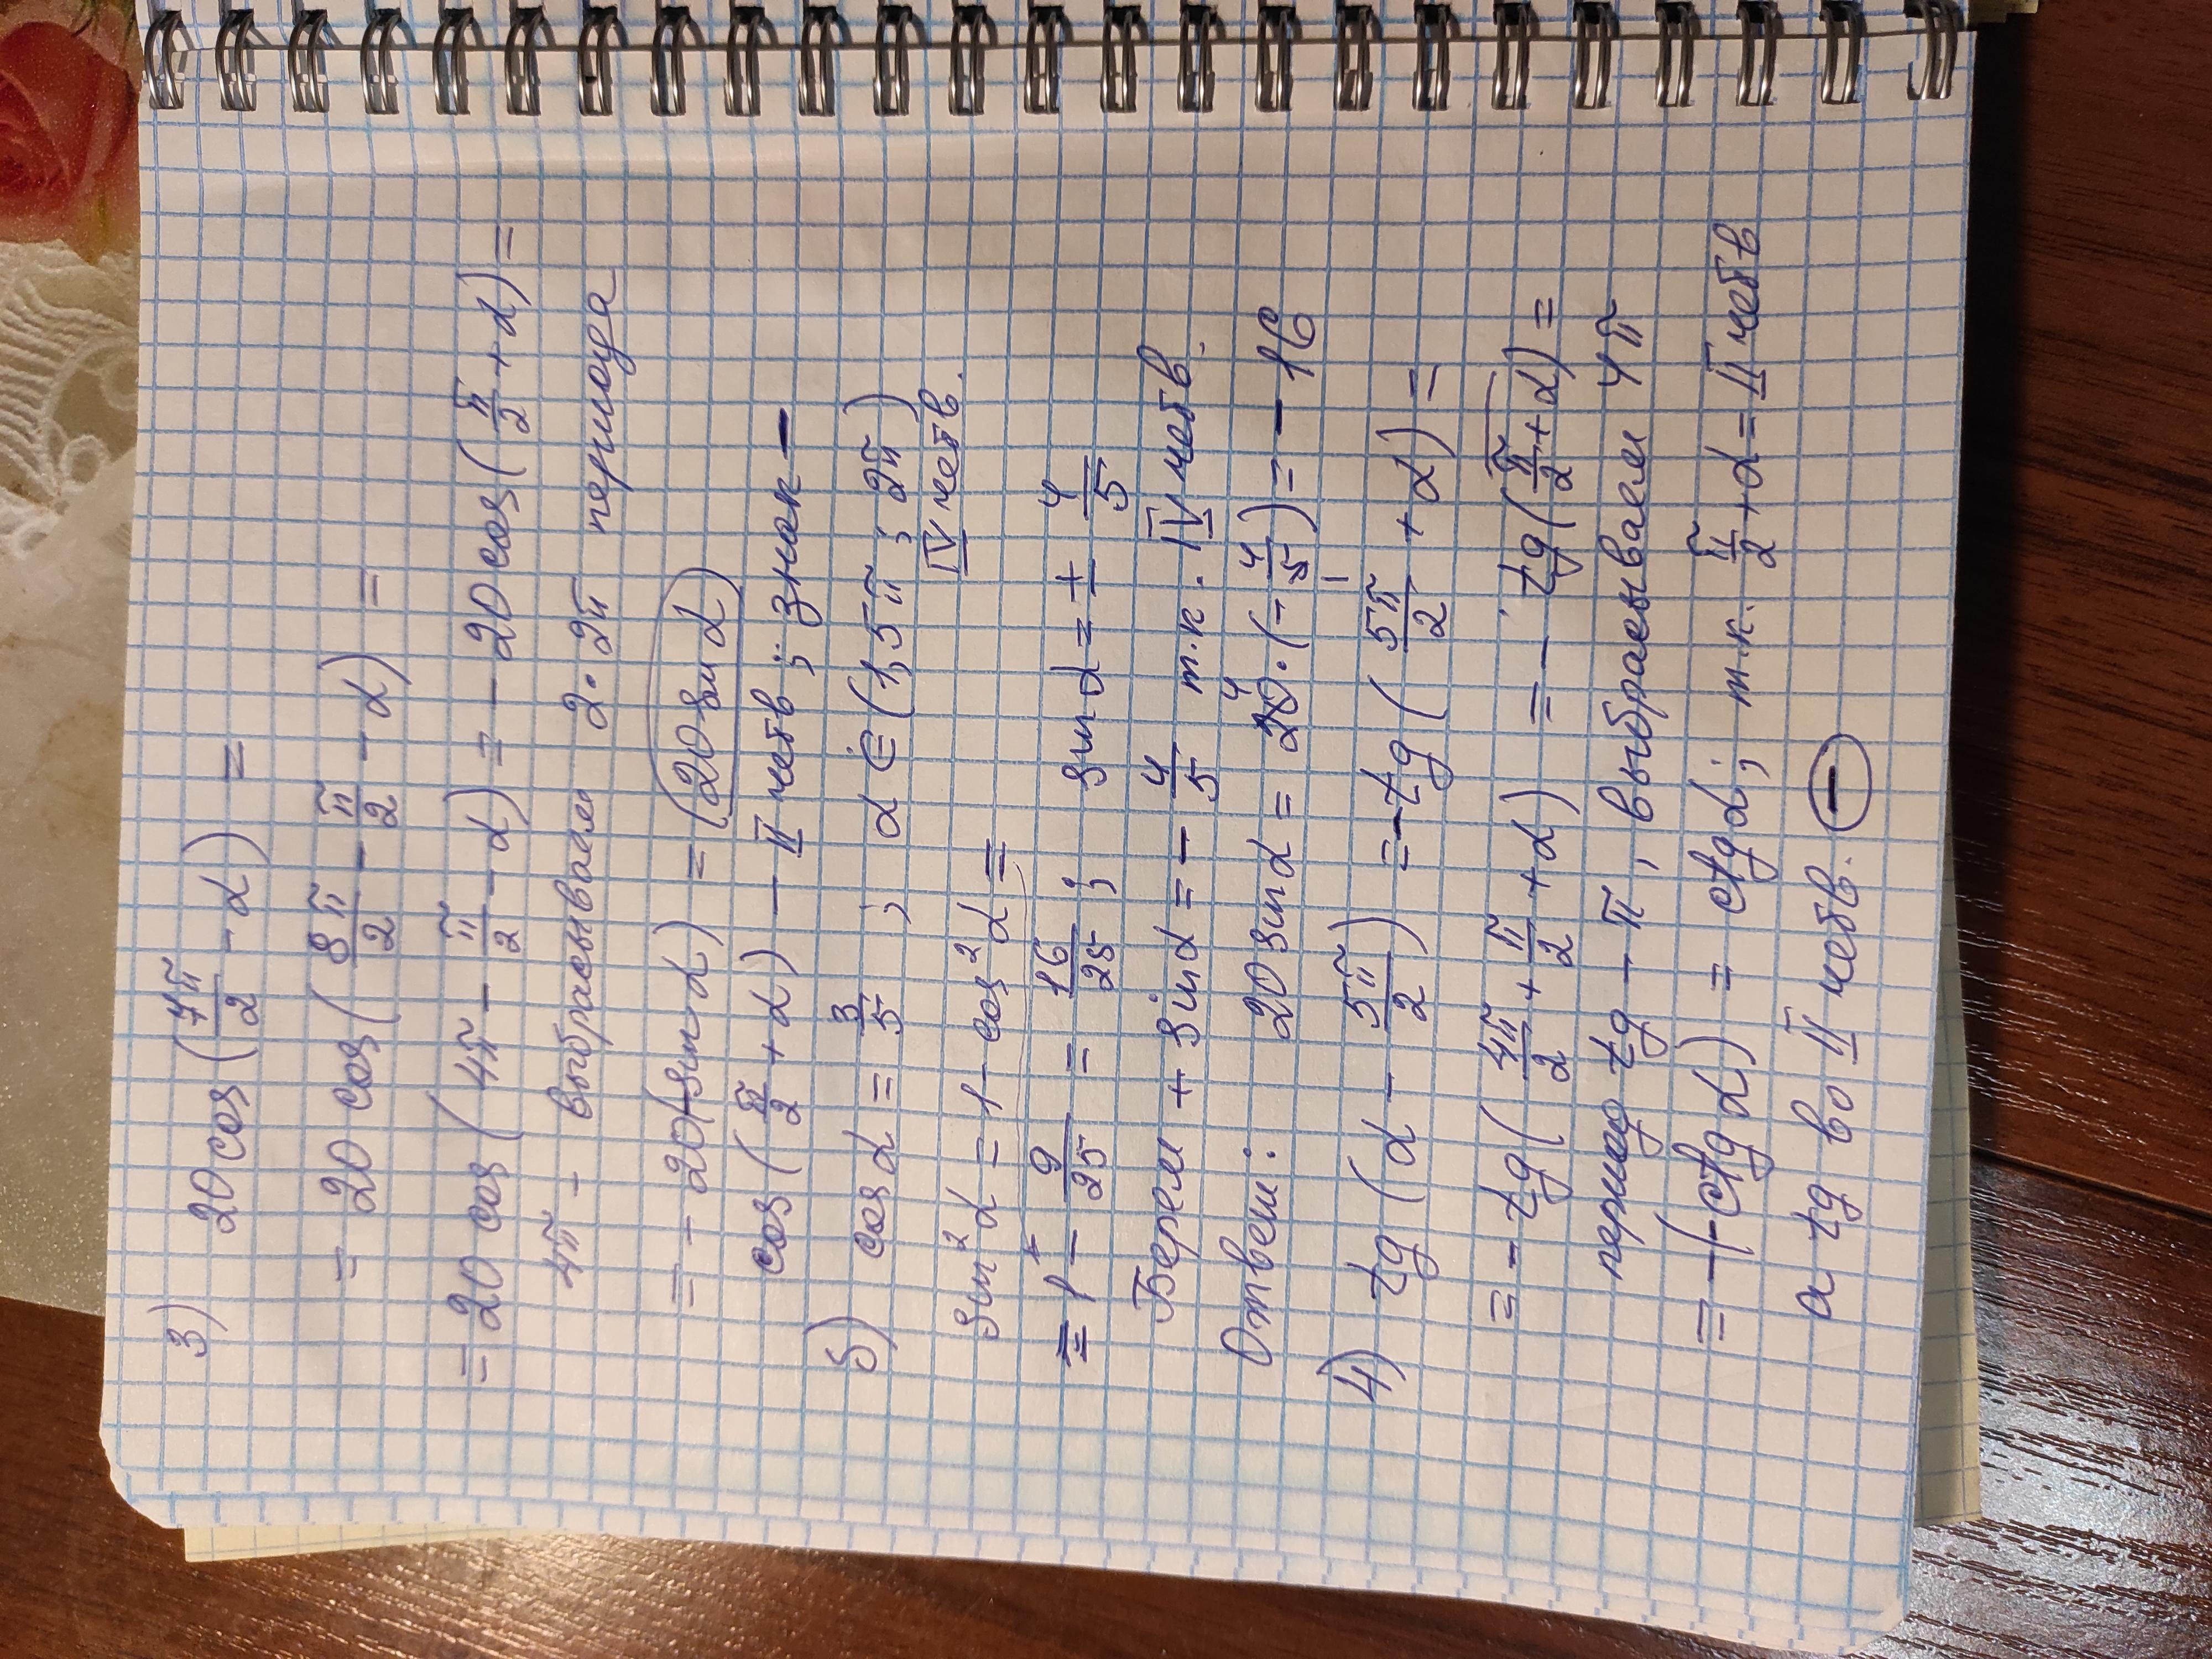 3) 20 cos (7π/2 - α) =
= 20 cos (8π/2 - π/2 - α) =
= 20 cos (4π - π/2 - α) = - 20 cos (π/2 + α) =
4π - выбрасываем 2·2π периода
= - 20(-sin α) = (20 sin α)
cos (π/2 + α) - II четв ; знак -
5) cos α = 3/5 ; α ∈ (1,5π ; 2π)
IV четв.
sin² α = 1 - cos² α =
= 1 - 9/25 = 16/25 ; sin α = ± 4/5
Берем + sin α = - 4/5 т.к. IV четв.
Ответ: 20 sin α = 20 · (- 4/5) = - 16
4) tg (α - 5π/2) = - tg (5π/2 + α) =
= - tg (4π/2 + π/2 + α) = - tg (π/2 + α) =
период tg - π, выбрасываем 4π
= - (-ctg α) = ctg α; т.к. π/2 + α = II четв
а tg во II четв. -